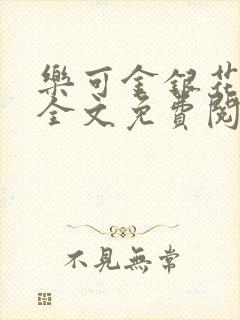 樂可金銀花
全文免費閱
不見無常